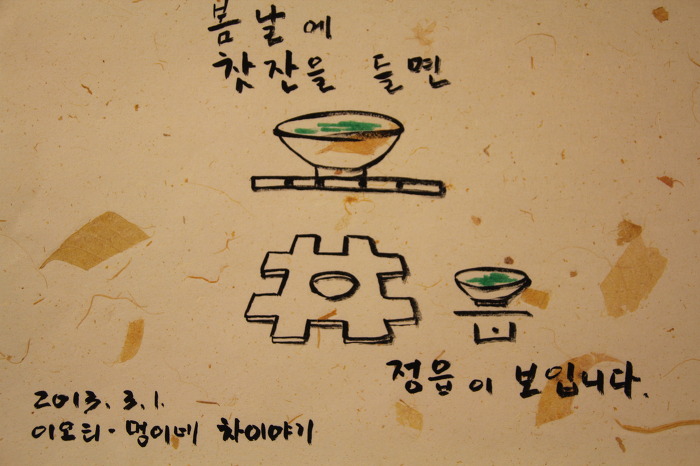 봄날에
찻잔을 들면
정읍이 보입니다.
2013. 3. 1.
이오티· 차이야기